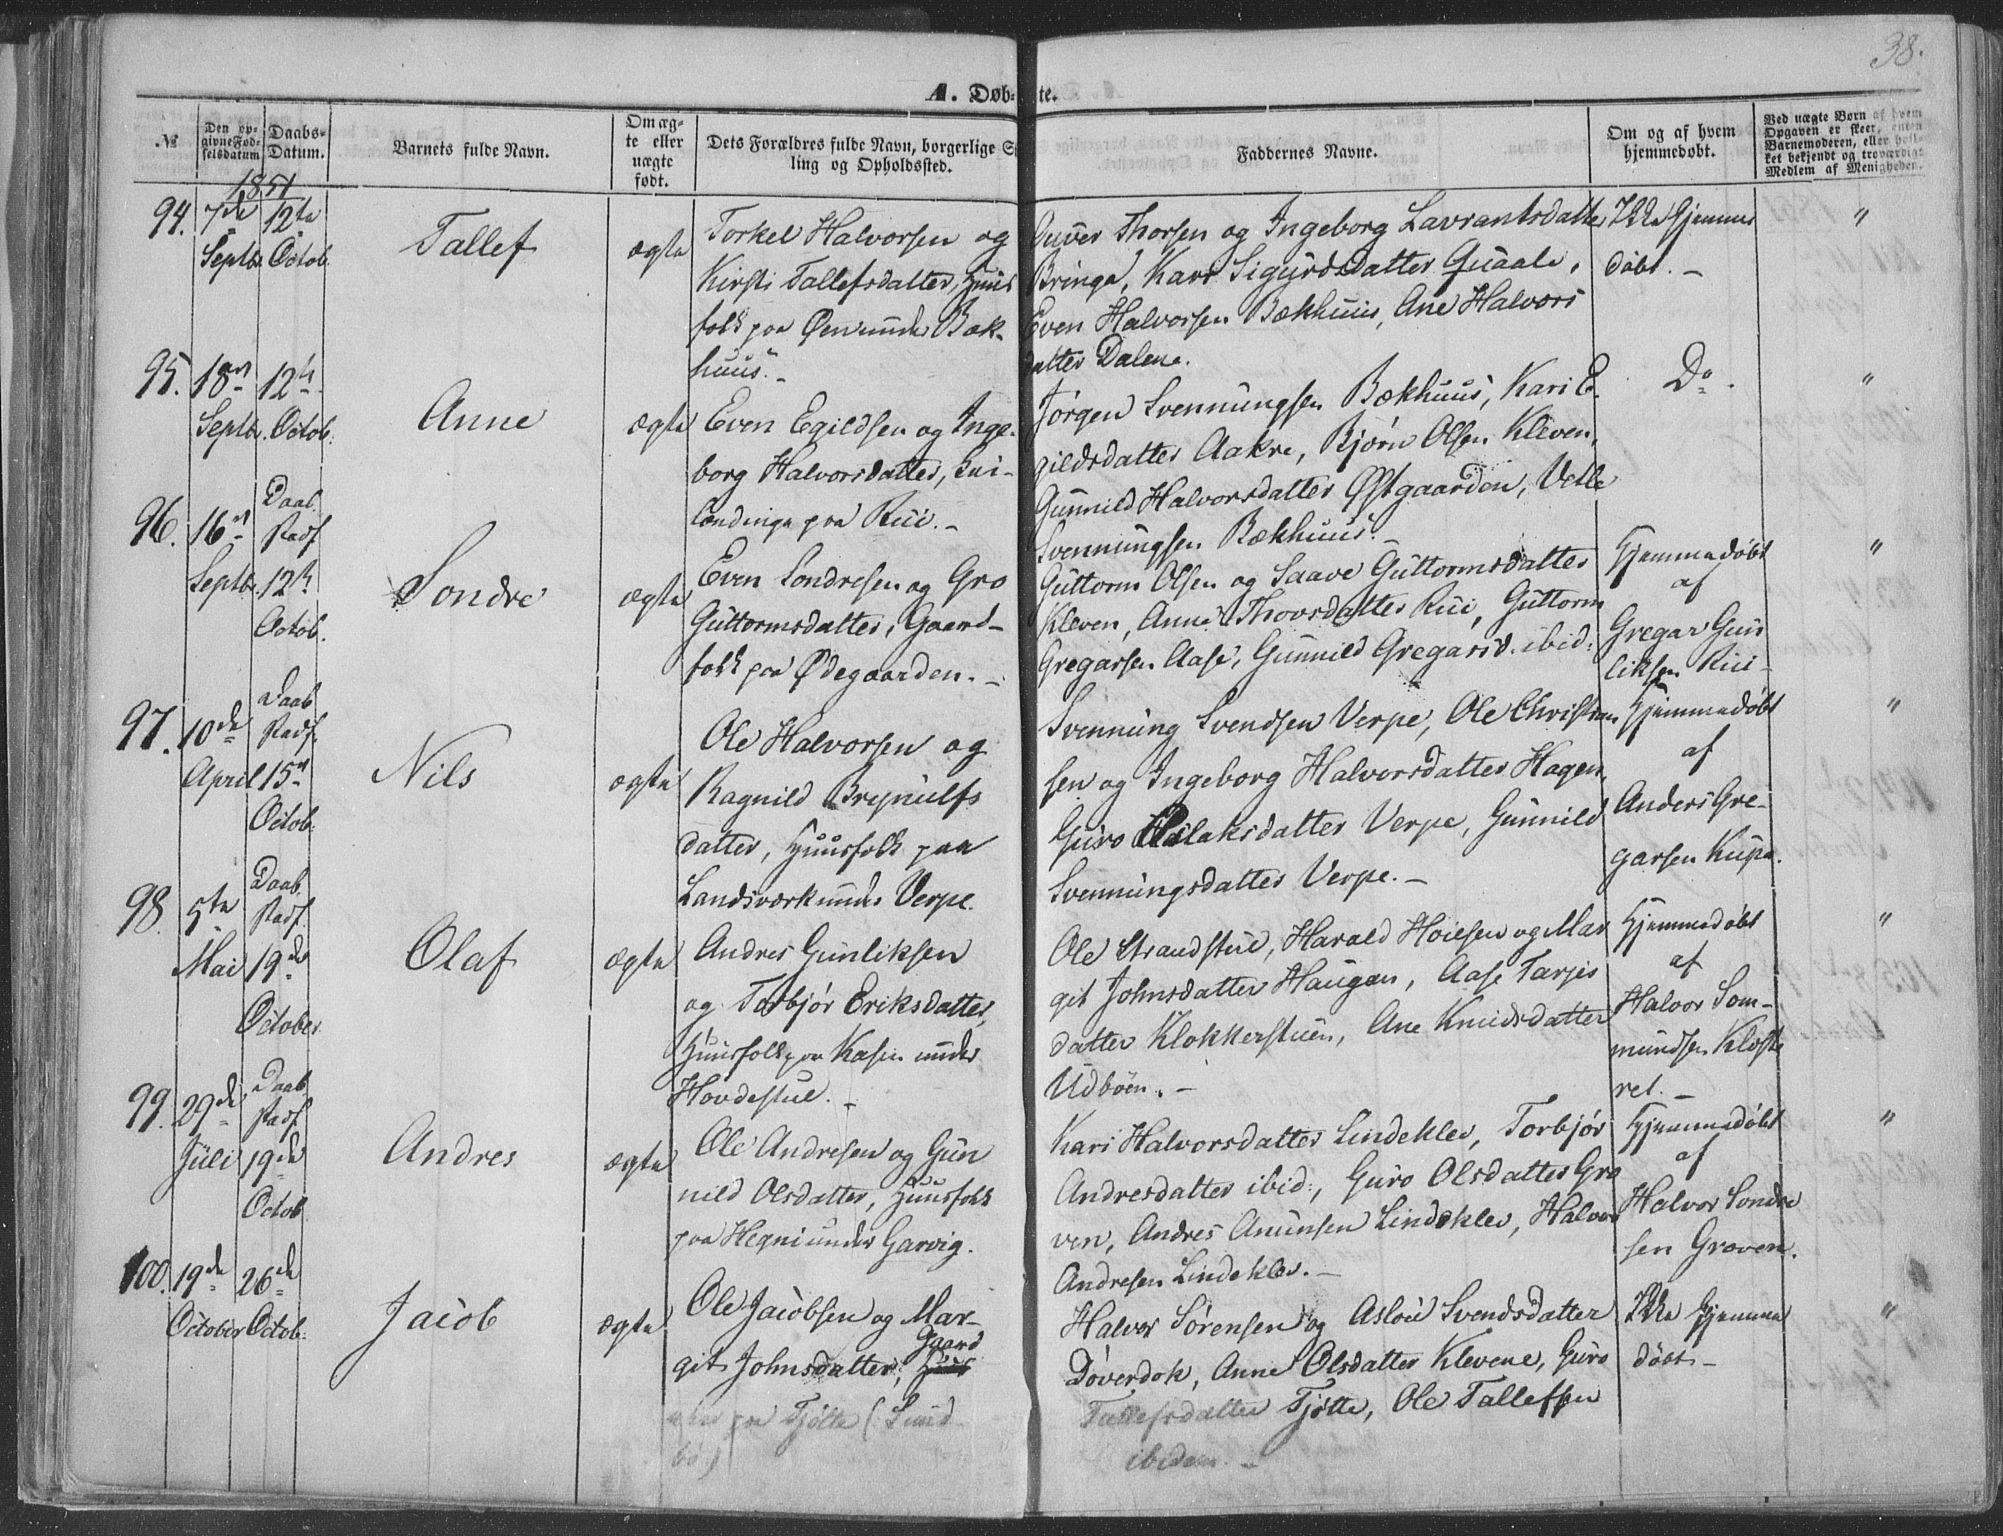 38.
A. Døbte.
№
Den opgivne Fødselsdatum
Daabs-Datum.
Barnets fulde Navn.
Om ægte eller uægte født.
Dets Forældres fulde Navn, borgerlige Stilling og Opholdssted.
Faddernes Navne.
Om og af hvem hjemmedøbt.
Ved uægte Børn af hvem Opgaven er skeet, enten Barnemoderen, eller hvilket bekjendt og troværdigt Medlem af Menigheden.
1851
94. 7de Septbr. 12te Octob.
Tallef
ægte
Torkel Halvorsen og
Kirsti Tallefsdatter, Huus
folk paa Øen under Bæk-
huus.-
Thorsen og Ingeborg Lavrantsdatter
Bringa, Kari Sigurdsdatter Quaale,
Even Halvorsen Bækhuus, Ane Halvors
datter Dalene.
Ikke Hjemme
døbt. -
"
95. 18de Septbr. 12te Octob.
Anne
ægte
Even Egildsen og Inge-
borg Halvorsdatter,
paa Rui.-
Jørgen Svennungsen Bækhuus, Kari E
gildsdatter Aakre, Bjørn Olsen Kleven,
Gunnild Halvorsdatter Østgaarden, Vetle
Svennungsen Bækhuus.-
Do.
"
96. 16de Septbr. Daab Stadf 12te Octob.
Sondre
ægte
Even Sondresen og Gro
Guttormsdatter, Gaard-
folk paa Ødegaarden.-
Guttorm Olsen og Saave Guttormsdatter
Kleven, Anne Thovsdatter Rui, Guttorm
Gregarsen Aase, Gunnild Gregarsd. ibid:
Hjemmedøbt
af
Gregar Gun
liksen Rui-
"
97. 10de April Daab Stadf. 15de Octob:
Nils
ægte
Ole Halvorsen og
Ragnild Brynulfs
datter, Huusfolk paa
Landsværk under Verpe.
Svennung Svendsen Verpe, Ole Christian
sen og Ingeborg Halvorsdatter Hagen,
Guro Aslaksdatter Verpe, Gunnild
Svennungsdatter Verpe.-
Hjemmedøbt
af
Anders Gre-
garsen Kupa.
"
98. 5te Mai Daab Stadf. 19de October
Olaf
ægte
Andres Gunliksen
og Torbjør Eriksdatter,
Huusfolk paa Kasin under
Hovdestul.-
Ole Strandstul, Harald Hoielsen og Mar
git Johnsdatter Haugan, Aase Tarjei
datter Klokkerstuen, Ane Knudsdatter
Udbøen.-
Hjemmedøbt
af
Halvor Som-
mundsen Kloste
ret.-
"
99. 29de Juli Daab Stadf 19de Octob
Andres
ægte
Ole Andresen og Gun
nild Olsdatter, Huusfolk
paa Hegni under Garvig.
Kari Halvorsdatter Lindeklev, Torbjør
Andresdatter ibid:, Guro Olsdatter Gro
ven, Andres Amunsen Lindeklev, Halvor
Andresen Lindeklev.-
Hjemmedøbt
af
Halvor Sondre
sen Groven.
"
100. 19de October 26de Octob:
Jacob
ægte
Ole Jacobsen og Mar-
git Johnsdatter, Gaard
paa Tjøtte (: Lund
bø)
Halvor Sørensen og Aslou Svendsdatter
Døverdok, Anne Olsdatter Klevene, Guro
Tallefsdatter Tjøtte, Ole Tallefsen
ibidem.-
Ikke Hjemme
døbt-
"